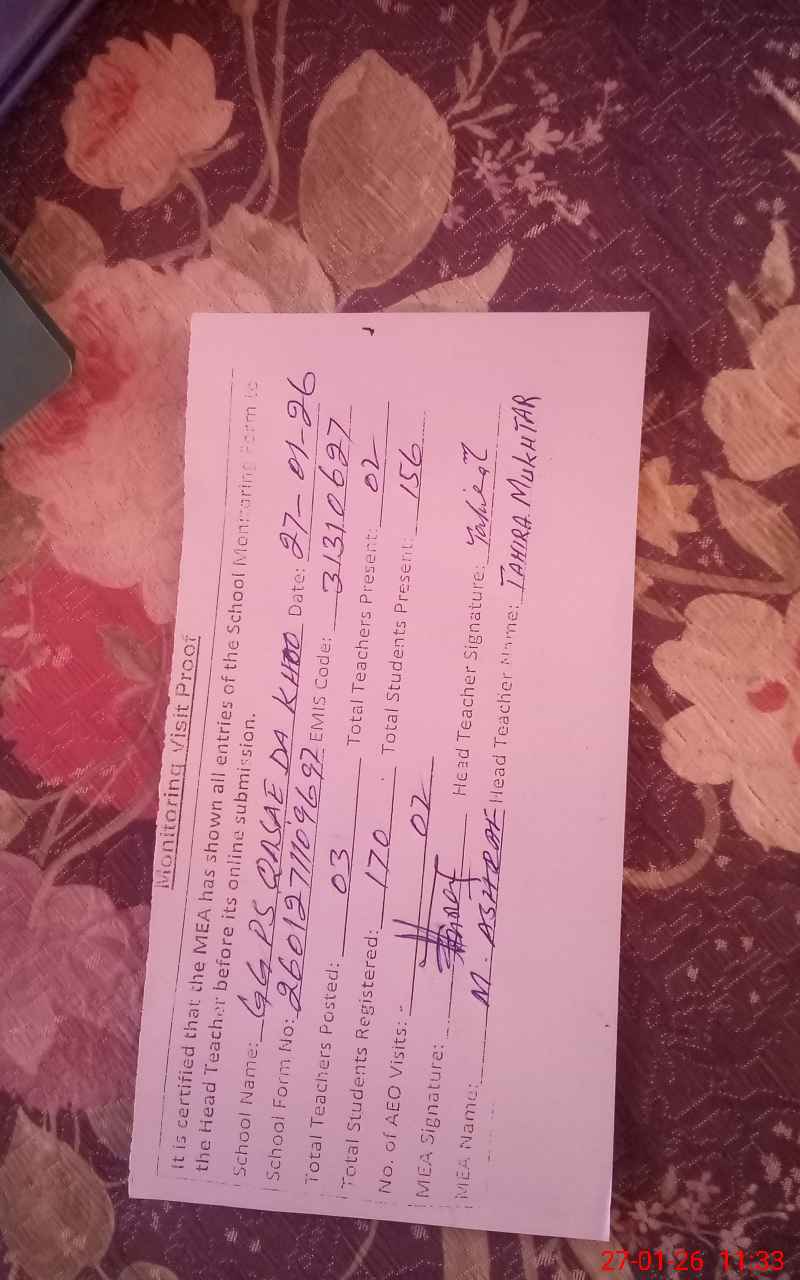 Monitoring Visit Proof
It is certified that the MEA has shown all entries of the School Monitoring Form to
the Head Teacher before its online submission.
School Name: GGPS QASAE DA KHOO Date: 27-01-26
School Form No: 2601271109692 EMIS Code: 31310627
Total Teachers Posted: 03 Total Teachers Present: 02
Total Students Registered: 170 Total Students Present: 156
No. of AEO Visits: 02
MEA Signature: Head Teacher Signature:
MEA Name: M. ASHRAF Head Teacher Name: TAHIRA MUKHTAR
27-01-26 11:33